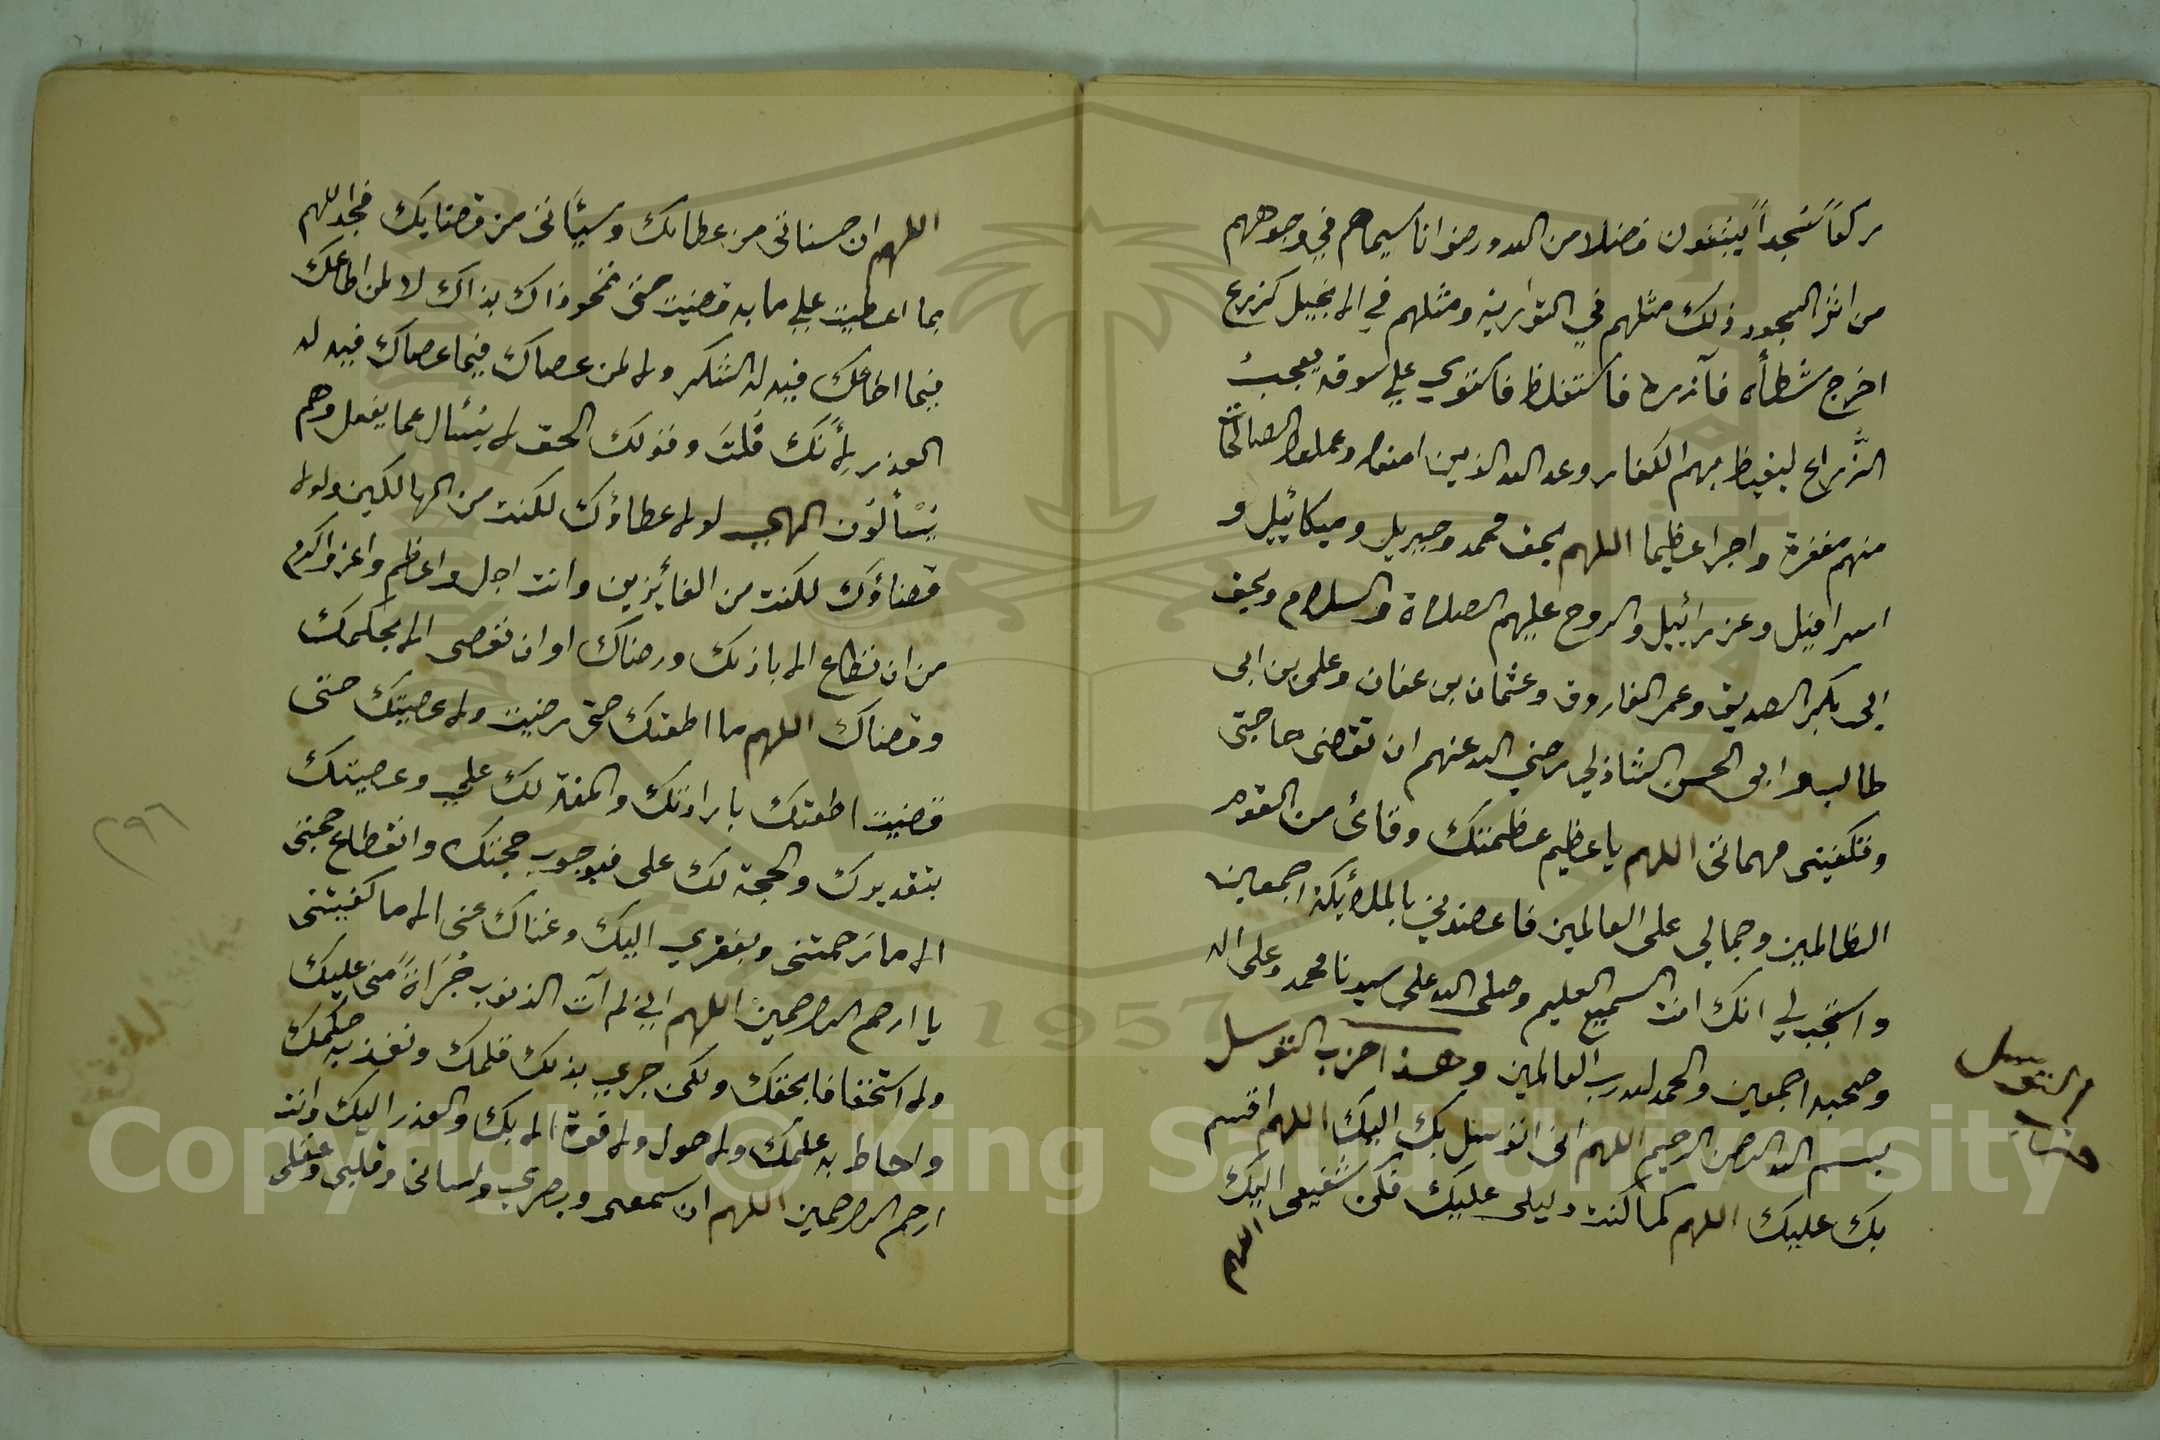 ركعاً سُجداً يبتغون فضلا من الله ورضوانا سيماهم في وجوههم
من اثر السجود ذلك مثلهم في التورية ومثلهم في الانجيل كزرع
اخرج شطأه فآزره فاستغلظ فاستوي علي سوقه يعجبُ
الزُّراع ليغيظ بهم الكفار وعد الله الذين امنوا وعملوا الصالحات
منهم مغفرة واجرا عظيما اللهم بحق محمد وجبريل وميكائيل و
اسرافيل وعزرائيل والروح عليهم الصلاة والسلام وبحق
ابي بكر الصديق وعمر الفاروق وعثمان بن عفان وعلى بن ابى
طالب وابو الحسن الشاذلي رضي الله عنهم ان تقضى حاجتى
وتكفينى مهماتى اللهم يا عظيم عظمتك وقائى من القوم
الظالمين وجمالي على العالمين فاعضدني بالملائكة اجمعين
واستجب لي انك انت السميع العليم وصلى الله على سيدنا محمد وعلى اله
وصحبه اجمعين والحمد لله رب العالمين وهذا حزب التوسل
بسم الله الرحمن الرحيم اللهم انى اتوسل بك اليك اللهم اقسم
بك عليك اللهم كما كنت دليلى عليك فكن شفيعى اليك
اللهم
التوسل
اللهم ان حسناتى من عطائك وسيئاتى من قضايك فجد اللهم
بما اعطيت علي ما به قضيت حتى تمحو ذاك بذاك لا لمن اطاعك
فيما اطاعك فيه له الشكر ولا لمن عصاك فيما عصاك فيه له
العذر لأنك قُلتَ وقولك الحق لا يُسئال عما يفعل وهم
يُسْألوُن الهي لولا عطاؤك لكنت من الهالكين ولولا
قضاؤك لكنت من الفائزين وانت اجل واعظم واعز واكرم
من ان تطاع الا باذنك ورضاك او ان تعصى الا بحكمك
وقضاك اللهم ما اطعتك حتى رضيت ولا عصيتك حتى
قضيت اطعتك بارادتك والمنة لك علي وعصيتك
بتقديرك والحجة لك على فبوجوب حجتك وانقطاع حجتى
الا ما رحمتنى وبفقري اليك وغناك عنى الا ما كفيتنى
يا ارحم الراحمين اللهم اني لم آت الذنوب جُرَاةً منى عليك
ولا استخفافا بحقك ولكن جري بذلك قلمك ونفذ به حكمك
واحاط به علمك ولا حول ولا قوة الا بك والعذر اليك وانت
ارحم الراحمين اللهم ان سمعى وبصري ولسانى وقلبى وعقلى
٢٩٦
1957
Copyright © King Saud University